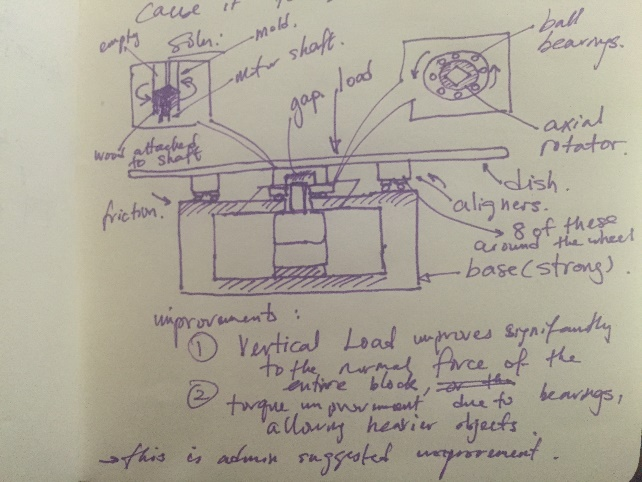 cause it
empty
Soln:
mold.
motor shaft.
gap
load
ball
bearings.
wood attached
to shaft
axial
rotator.
friction.
dish.
aligners.
8 of these
around the wheel
base (strong).
improvements:
① Vertical Load improves significantly
to the normal force of the
entire block,
② torque improvement due to bearings,
allowing heavier objects.
→ this is admin suggested improvement.